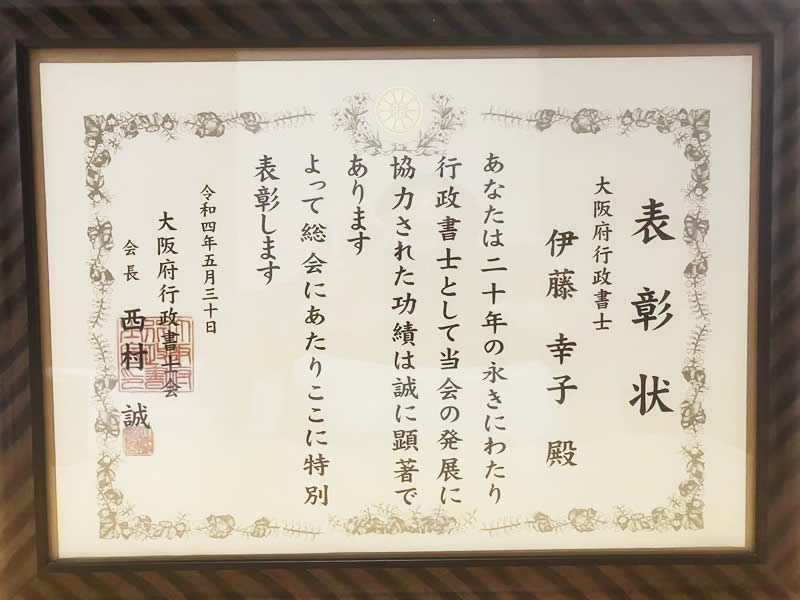 表彰状
大阪府行政書士
伊藤 幸子 殿
あなたは二十年の永きにわたり
行政書士として当会の発展に
協力された功績は誠に顕著で
あります
よって総会にあたりここに特別
表彰します
令和四年五月三十日
大阪府行政書士会
会長 西村 誠